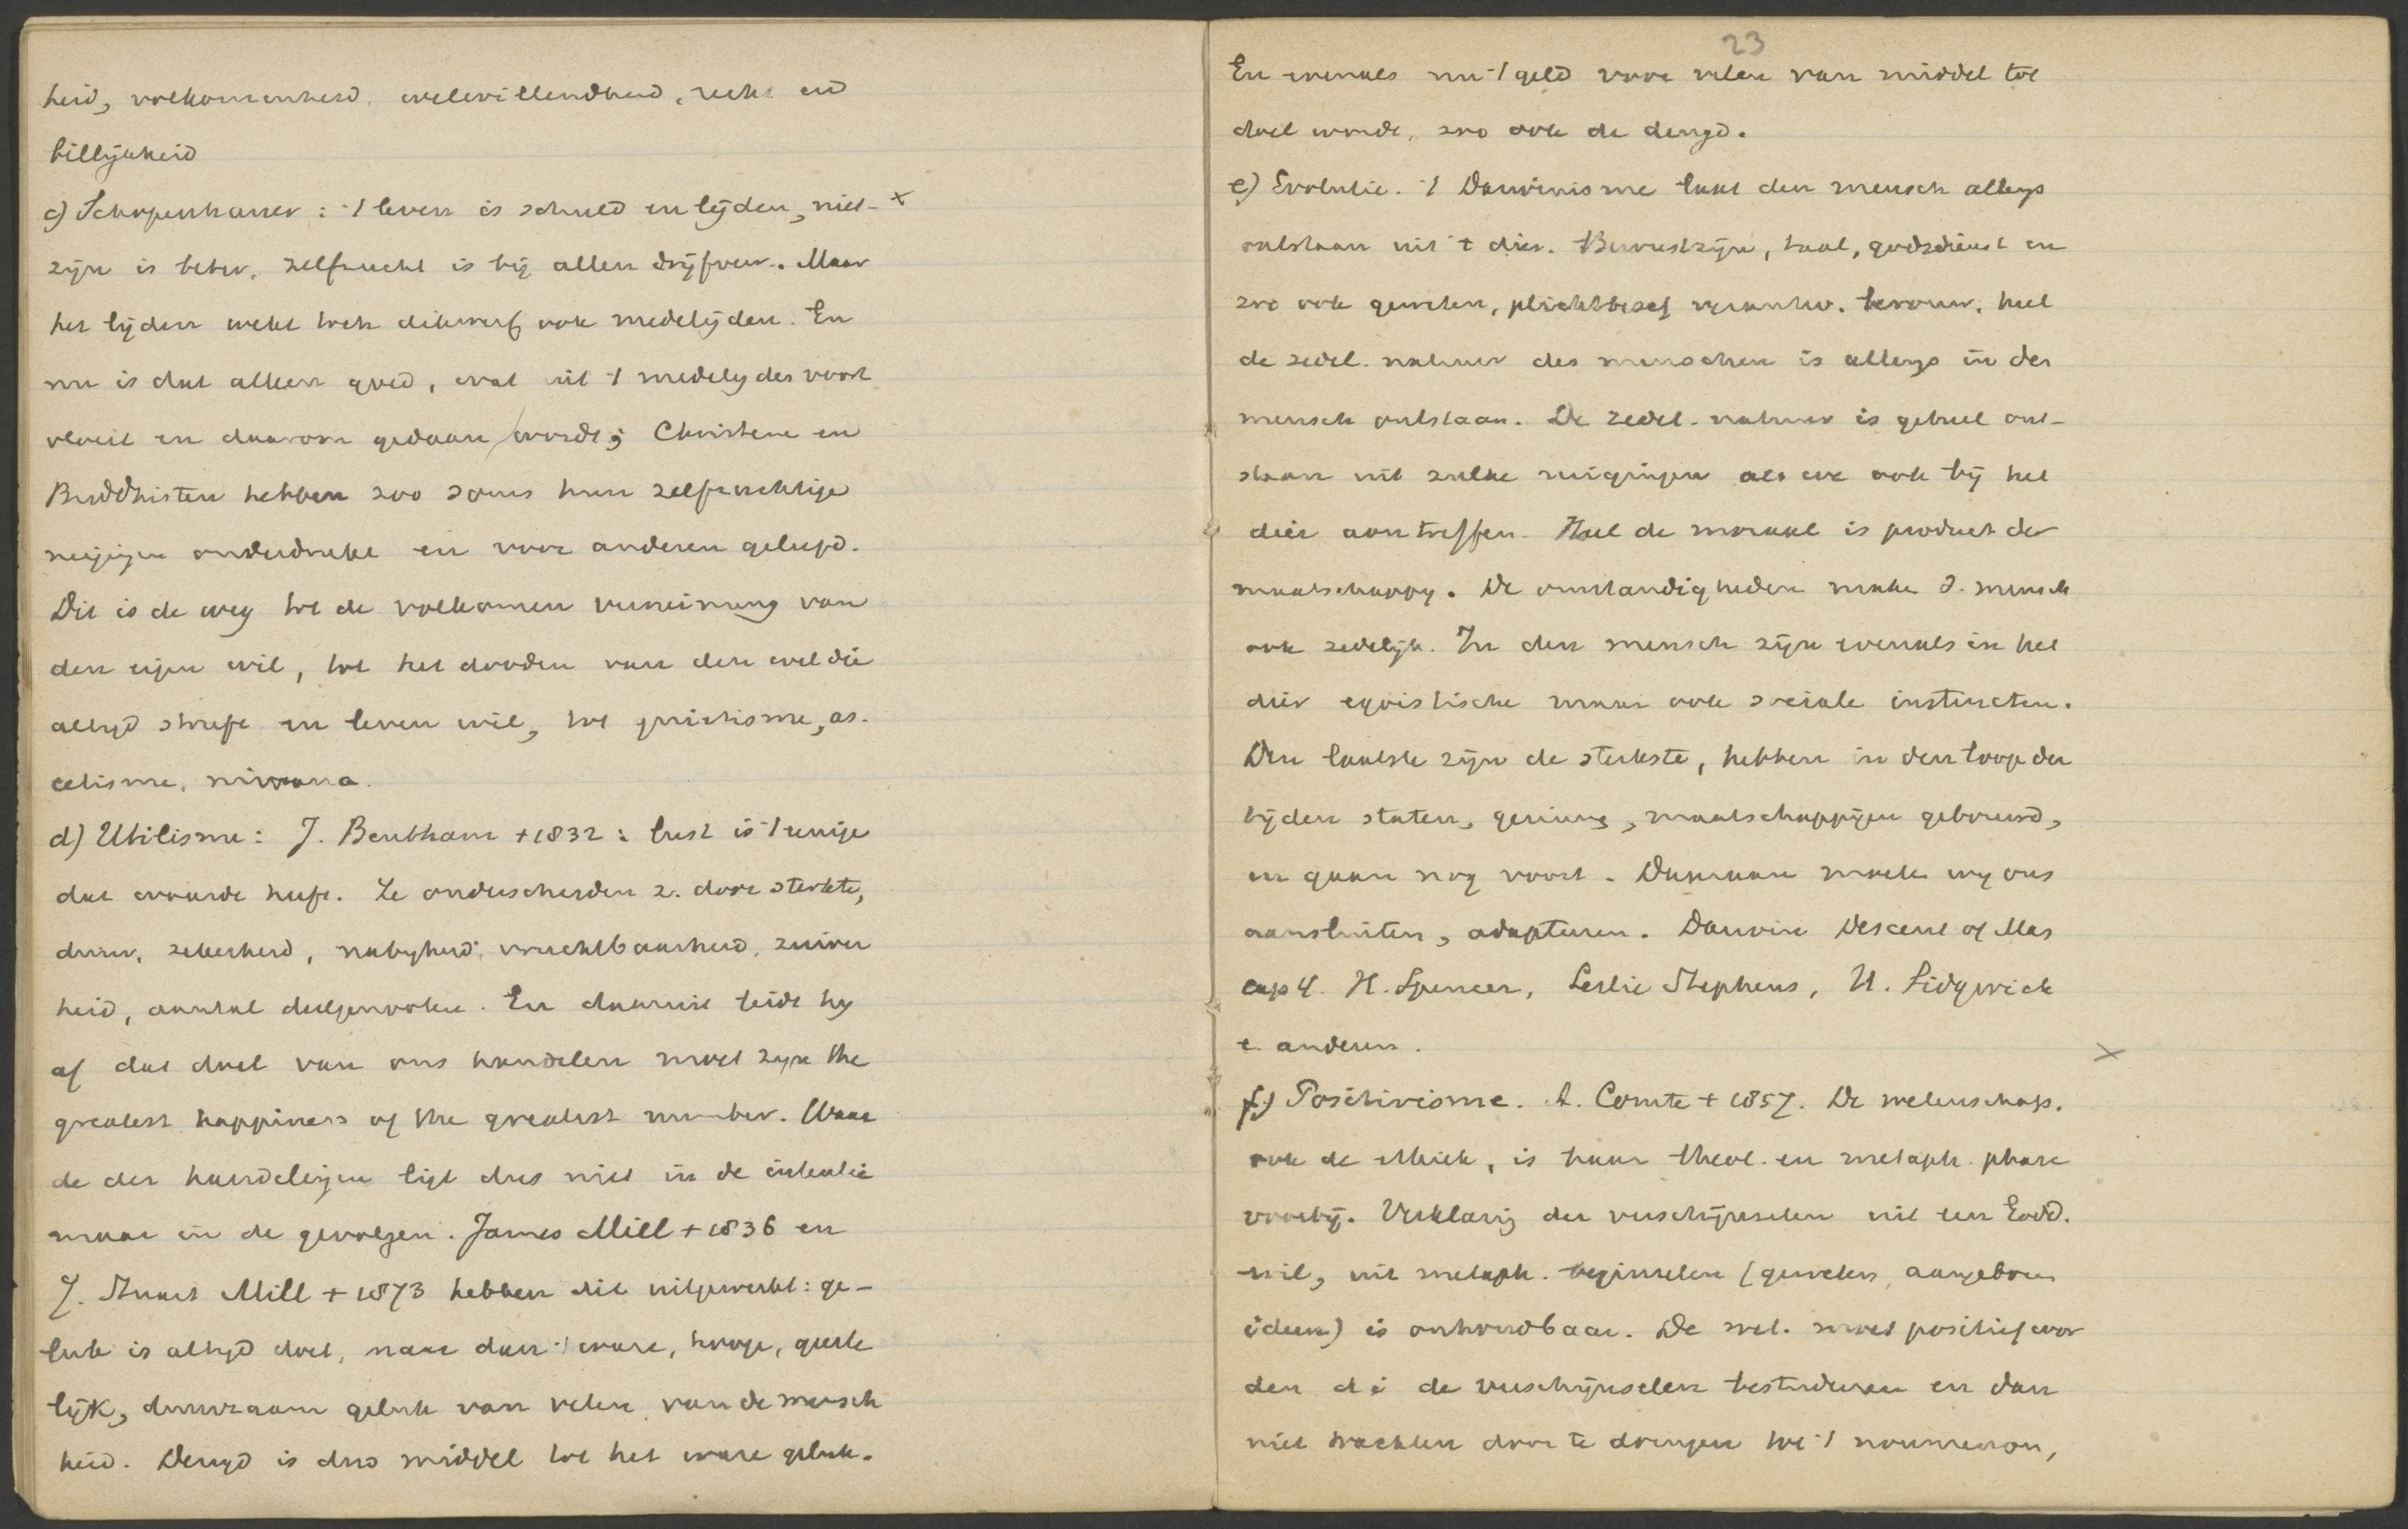 heid, volkomenheid, welwillendheid, recht en
billijkheid
c) Schopenhauer: 't leven is schuld en lijden, niet- x
zijn is beter. Zelfzucht is bij allen drijfveer. Maar
het lijden wekt toch dikwerf ook medelijden. En
nu is dat alleen goed, wat uit 't medelijden voort
vloeit en daarom gedaan wordt; Christenen en
Buddhisten hebben zoo soms hun zelfzuchtige
neigingen onderdrukt en voor anderen geleefd.
Dit is de weg tot de volkomen verneining van
den eigen wil, tot het dooden van den wil die
altijd streeft en leven wil, tot quietisme, as-
cetisme, nirvana.
d) Utilisme: J. Bentham + 1832: lust is 't eenige
dat waarde heeft. Ze onderscheiden z. door sterkte,
duur, zekerheid, nabijheid, vruchtbaarheid, zuiver
heid, aantal deelgenooten. En daaruit leidt hij
af dat doel van ons handelen moet zijn the
greatest happiness of the greatest number. Waar
de der handelingen ligt dus niet in de intentie
maar in de gevolgen. James Mill + 1836 en
J. Stuart Mill + 1873 hebben dit uitgewerkt: ge-
luk is altijd doel, maar dan 't ware, hooge, geeste
lijk, duurzaam geluk van velen, van de mensch
heid. Deugd is dus middel tot het ware geluk.
23
En evenals nu 't geld voor velen van middel tot
doel wordt, zoo ook de deugd.
e) Evolutie. 't Darwinisme laat den mensch allengs
ontstaan uit 't dier. Bewustzijn, taal, godsdienst en
zoo ook geweten, plichtbesef, verantw. berouw, heel
de zedel. natuur des menschen is allengs in den
mensch ontstaan. De zedel. natuur is geheel ont-
staan uit zulke neigingen als we ook bij het
dier aantreffen. Heel de moraal is product der
maatschappij. De omstandigheden maken d. mensch
ook zedelijk. In den mensch zijn evenals in het
dier egoistische maar ook sociale instincten.
Den laatste zijn de sterkste, hebben in den loop der
tijden staten, gezinnen, maatschappijen gebouwd,
en gaan nog voort. Daaraan moeten wij ons
aansluiten, adapteeren. Darwin Descent of Man
cap 4. H. Spencer, Leslie Stephens, H. Sidgwick
e. anderen. x
f) Positivisme. A. Comte + 1857. De wetenschap,
ook de ethiek, is haar theol. en metaph. phase
voorbij. Verklaring der verschijnselen uit een Godd.
wil, uit metaph. beginselen (geweten, aangeboren
ideen) is onhoudbaar. De wet. moet positief wor
den d i de verschijnselen bestudeeren en dan
niet trachten door te dringen tot 't noumenon,